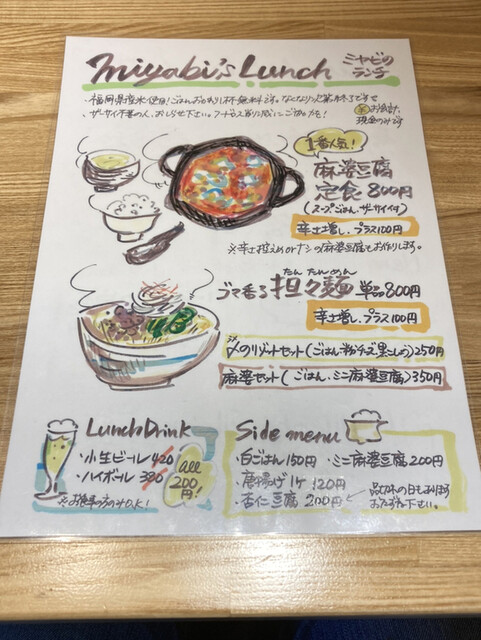 miyabi's Lunch
ミヤビの
ランチ
・福岡県産米使用!ごはんおかわり1杯無料です。なくなり次第終了ですで
ザーサイ不要の人、お知らせ下さい。
※お会計、
現金のみです
1番人気!
麻婆豆腐
定食 800円
(スープ、ごはん、ザーサイ付)
辛さ増し、プラス100円
※辛さ控えめorナシの麻婆豆腐もお作りします。
たん たんめん
ゴマ香る 担々麺 単品800円
辛さ増し、プラス100円
〆のリゾットセット(ごはん半分・チーズ・黒こしょう)250円
麻婆セット(ごはん、ミニ麻婆豆腐)350円
Lunch Drink
・小生ビール 420
・ハイボール 380
all
200円!
※お食事の方のみO.K!
Side menu
・白ごはん150円 ・ミニ麻婆豆腐200円
・唐揚げ1ケ 120円
・杏仁豆腐 200円
品切れの日もあります
おたずね下さい。